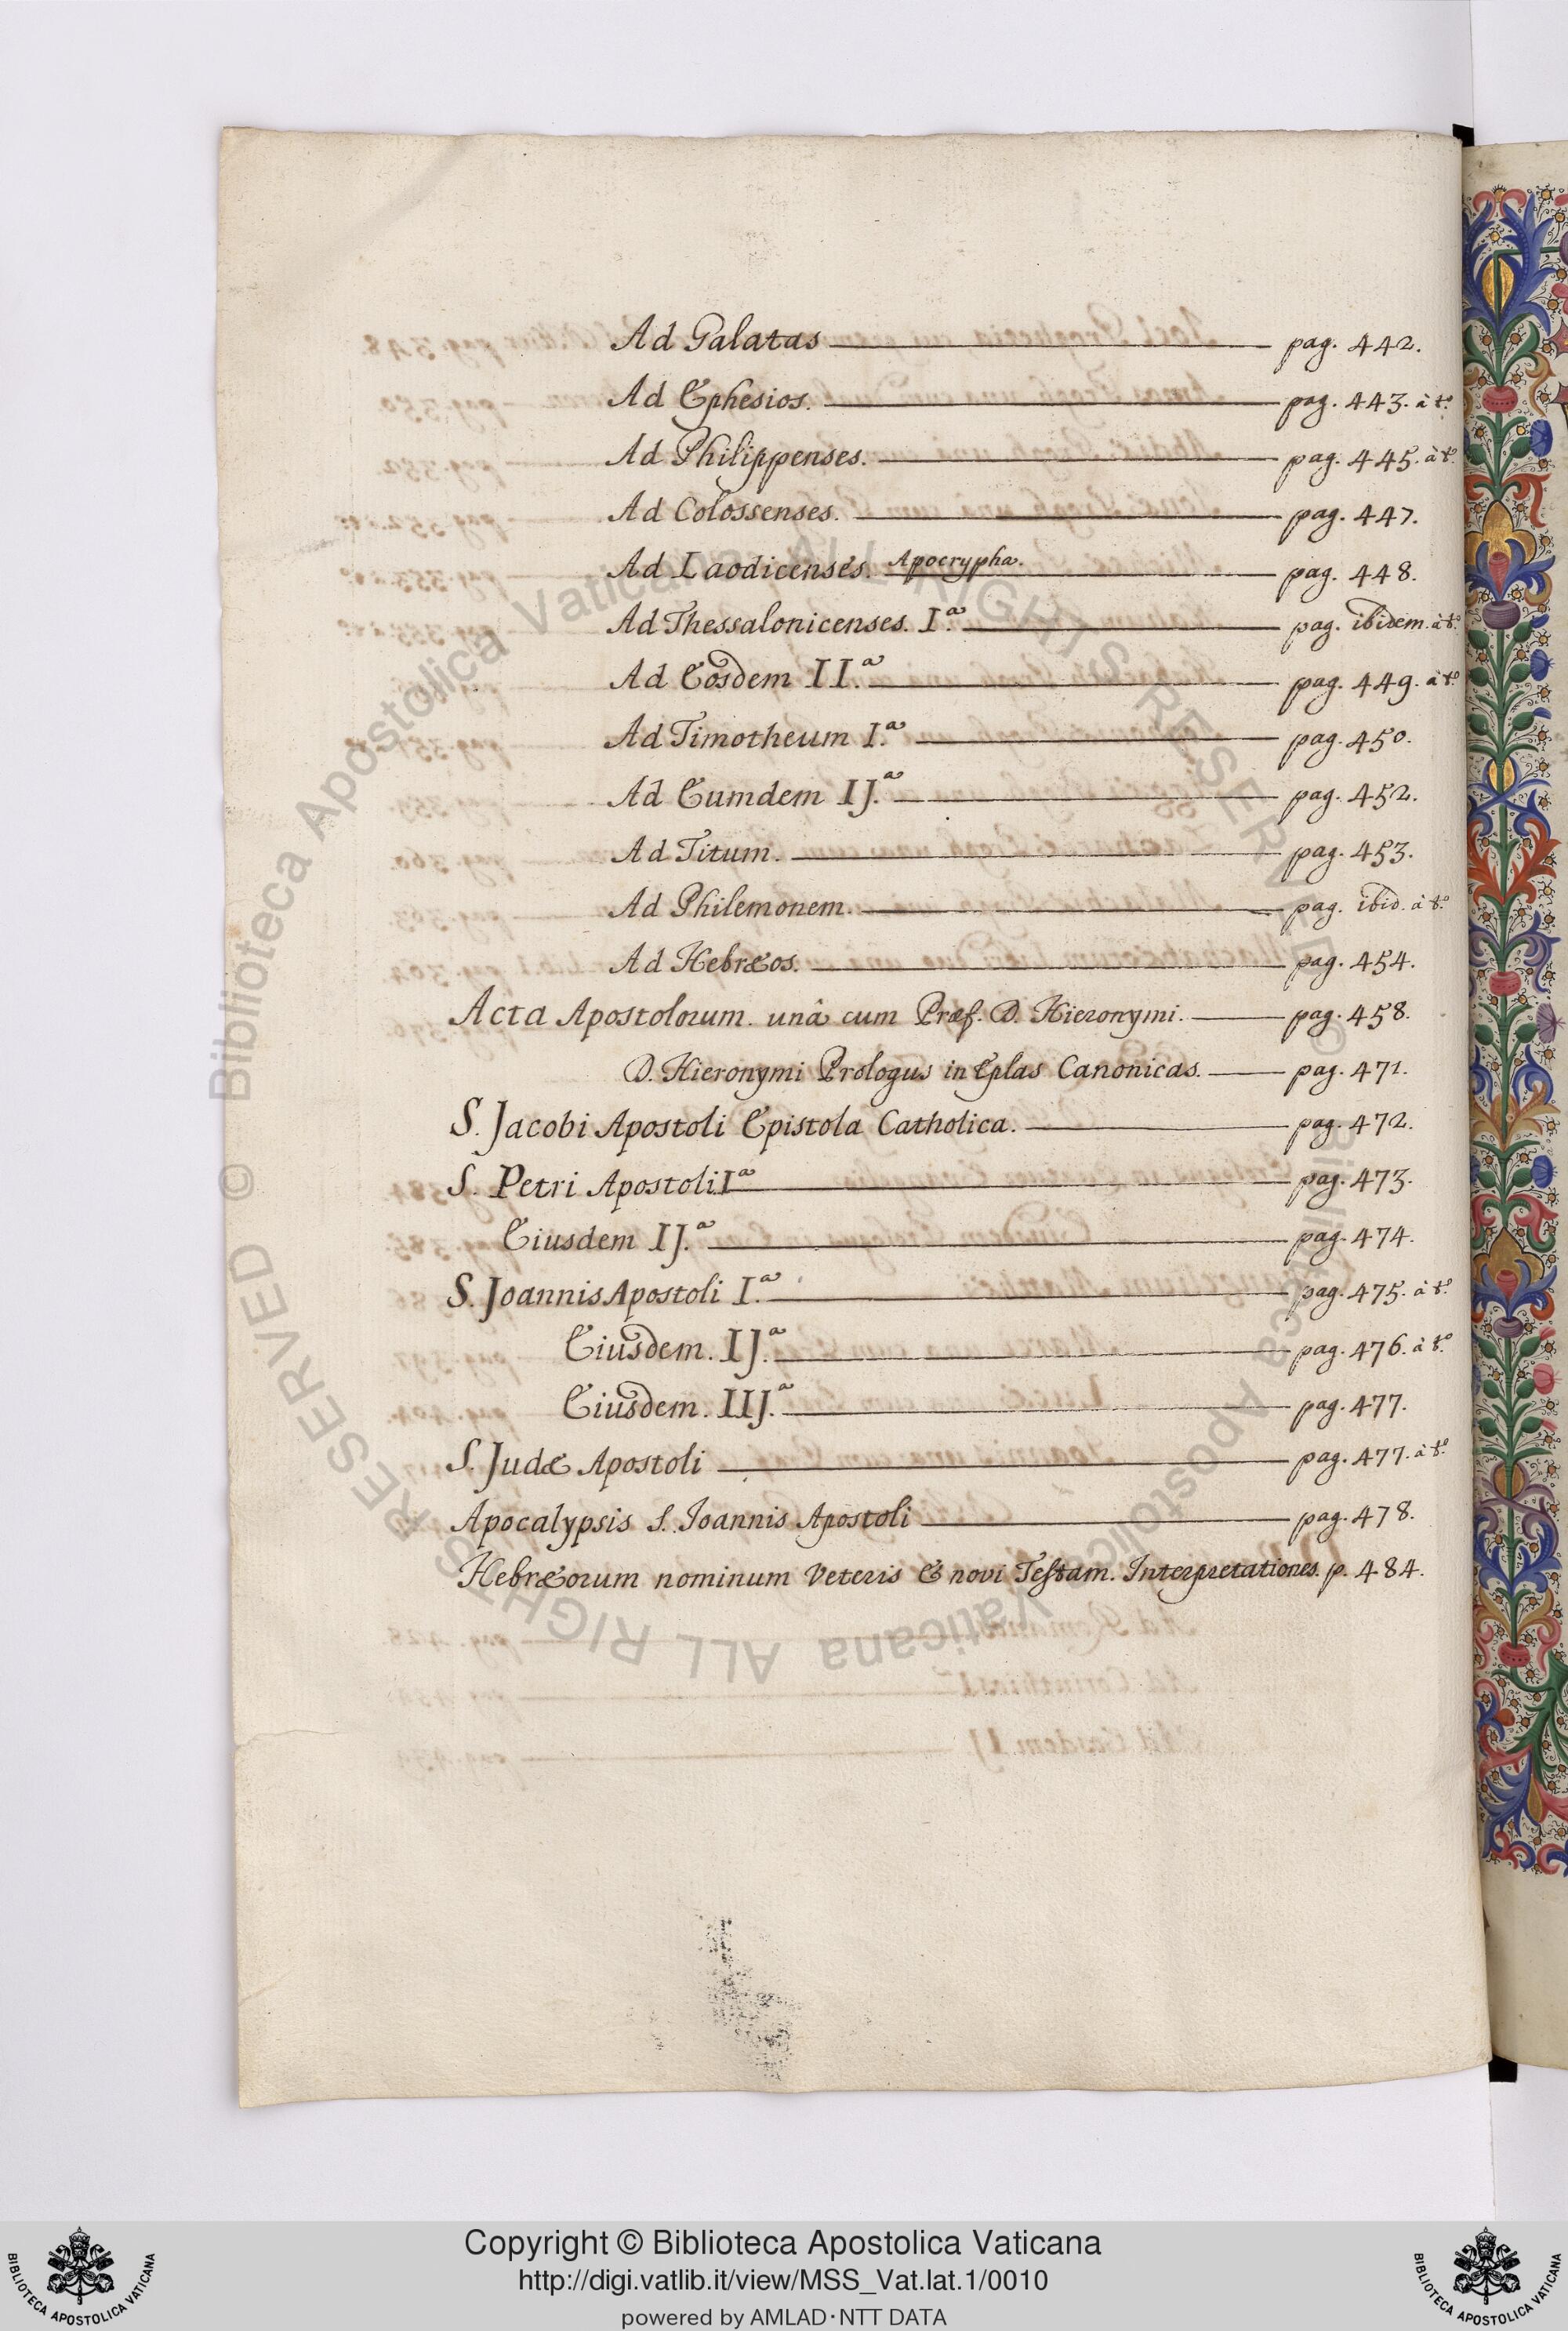 Ad Galatas pag. 442.
Ad Ephesios. pag. 443. à t.º
Ad Philippenses. pag. 445. à t.º
Ad Colossenses. pag. 447.
Ad Laodicenses. Apocrypha. pag. 448.
Ad Thessalonicenses. I.ª pag. ibidem. à t.º
Ad Eosdem II.ª pag. 449. à t.º
Ad Timotheum I.ª pag. 450.
Ad Eumdem IJ.ª pag. 452.
Ad Titum. pag. 453.
Ad Philemonem. pag. ibid. à t.º
Ad Hebræos. pag. 454.
Acta Apostolorum. unâ cum Præf. D. Hieronymi. pag. 458.
D. Hieronymi Prologus in Eplas Canonicas. pag. 471.
S. Jacobi Apostoli Epistola Catholica. pag. 472.
S. Petri Apostoli I.ª pag. 473.
Eiusdem IJ.ª pag. 474.
S. Joannis Apostoli I.ª pag. 475. à t.º
Eiusdem. IJ.ª pag. 476. à t.º
Eiusdem. IIJ.ª pag. 477.
S. Judæ Apostoli pag. 477. à t.º
Apocalypsis S. Joannis Apostoli pag. 478.
Hebræorum nominum Veteris & novi Testam. Interpretationes. p. 484.
© Biblioteca Apostolica Vaticana ALL RIGHTS RESERVED © Biblioteca Apostolica Vaticana ALL RIGHTS RESERVED
Copyright © Biblioteca Apostolica Vaticana
http://digi.vatlib.it/view/MSS_Vat.lat.1/0010
powered by AMLAD·NTT DATA
BIBLIOTECA APOSTOLICA VATICANA
BIBLIOTECA APOSTOLICA VATICANA